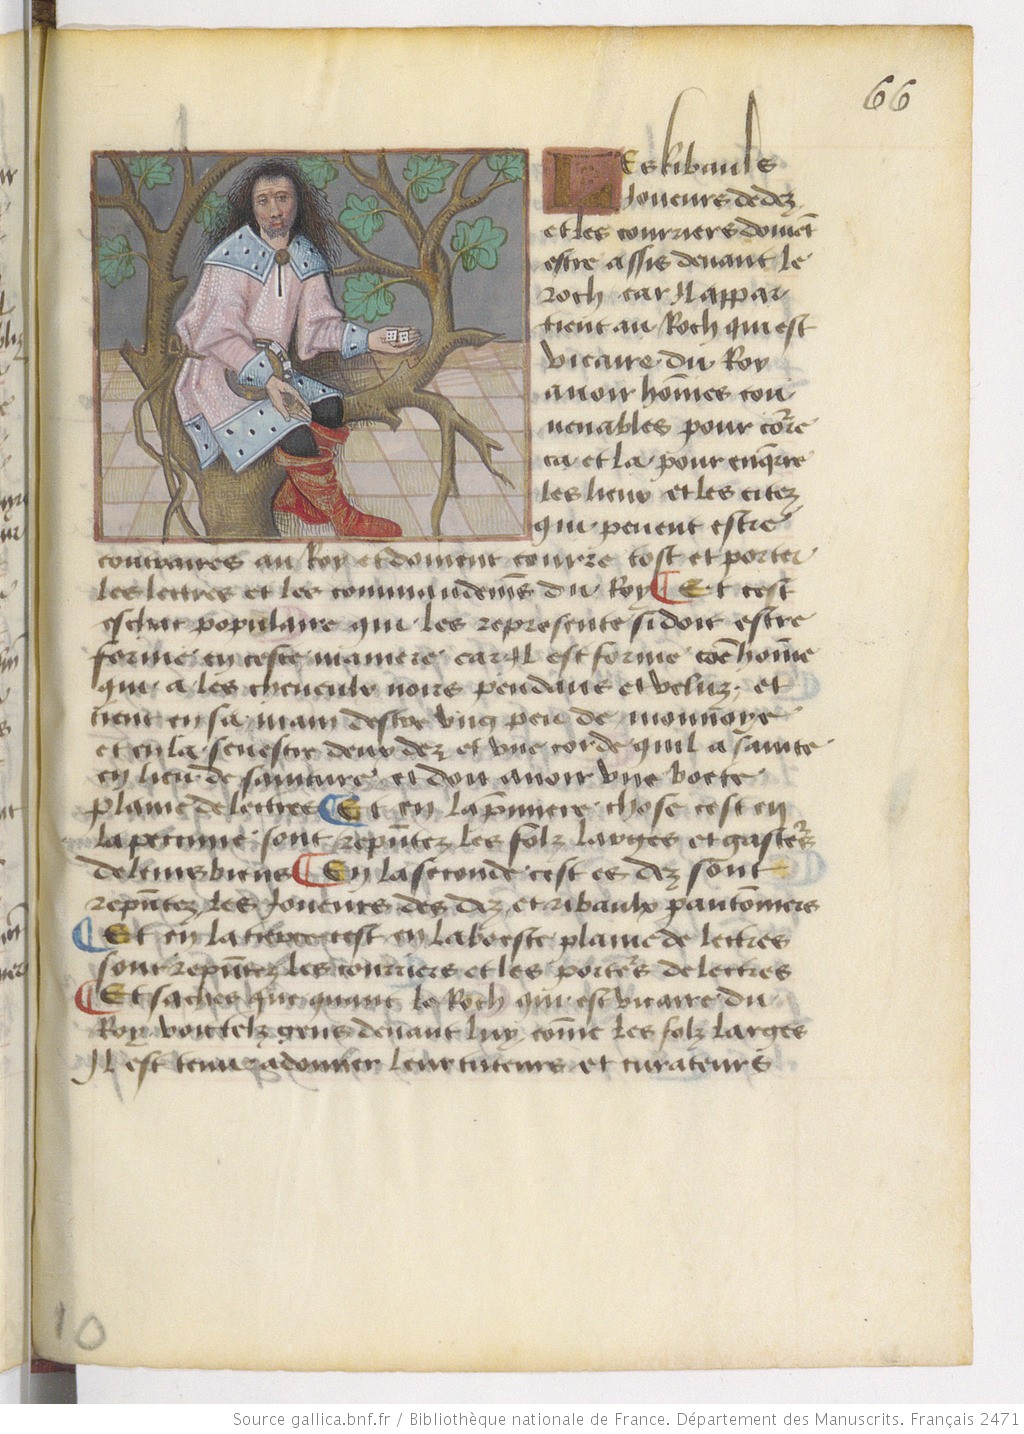 66
Les Ribauls
Joueurs de dez
et les courriers doiuēt
estre assis deuant le
roch car Il appar
tient au Roch qui est
vicaire du Roy
auoir hom̄es con
uenables pour cor̄e
ca et la pour enq̄rre
les lieux et les citez
qui peuent estre
contraires au Roy et doiuent courre tost et porter
les lettres et les commandemēs du Roy Et cest
eschac populaire qui les represente si doit estre
forme en ceste maniere car Il est forme cōe hom̄e
qui a les cheueulx noirs pendans et veluz et
tient en sa main destre vng peu de monnoye
et en la senestre deux dez et vne corde quil a sainte
en lieu de sainture et doit auoir vne boete
plaine de lettres Et en la p̄miere chose cest en
la pecune sont rep̄ntez les folz larges et gastēs
de leurs biens En la seconde cest es dez sont
rep̄ntez les Joueurs des dez et ribaulx pantōniers
Et en la tierce cest en la boeste plaine de lettres
sont rep̄ntez les courriers et les portēs de lettres
Et saches que quant le Roch qui est vicaire du
Roy voit telz gens deuant luy com̄e les folz larges
Il est tenu a donner leur tuteurs et curateurs
10
Source gallica.bnf.fr / Bibliothèque nationale de France. Département des Manuscrits. Français 2471